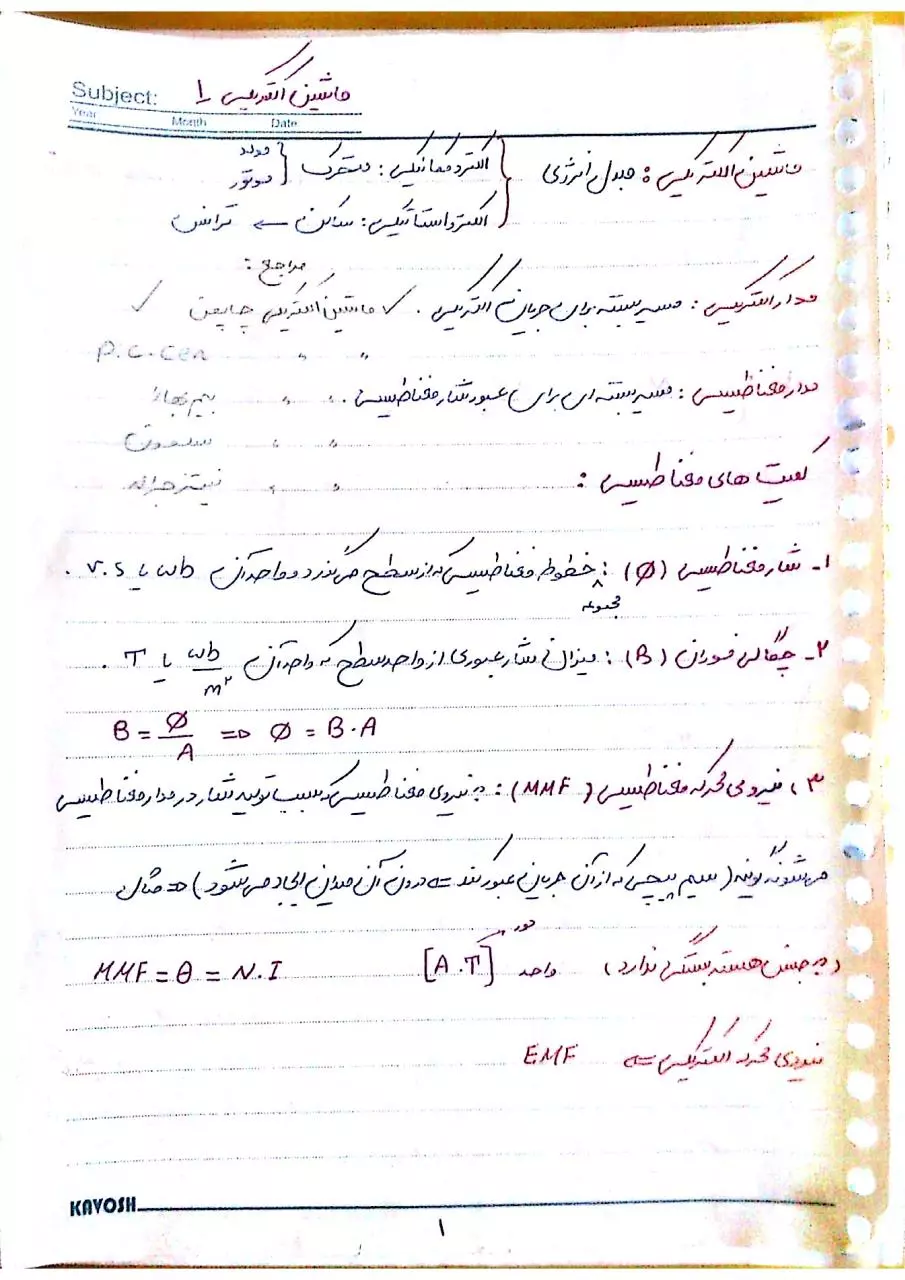 Subject: ماشین الکتریکی 1
Year Month Date
ماشین الکتریکی: مبدل انرژی { الکترومکانیکی: متحرک { مولد
موتور
الکترواستاتیکی: ساکن ← ترانس
مراجع:
مدار الکتریکی: مسیر بسته برای جریان الکتریکی. ✓ ماشین الکتریکی چاپمن ✓
" " P.C.Sen
مدار مغناطیسی: مسیر بسته ای برای عبور شار مغناطیسی. " " بیم بهارا
" "
کمیت های مغناطیسی: " " فیتزجرالد
1- شار مغناطیسی (Ø): مجموعه خطوط مغناطیسی که از سطح می گذرد و واحد آن wb یا v.s.
2- چگالی فوران (B): میزان شار عبوری از واحد سطح که واحد آن wb/m² یا T.
B = Ø/A => Ø = B.A
3، نیروی محرکه مغناطیسی (MMF): به نیروی مغناطیسی که سبب تولید شار در مدار مغناطیسی
می شود گویند (سیم پیچی که از آن جریان عبور کند => درون آن میدان ایجاد می شود) => مثال
(به جنس هسته بستگی ندارد) واحد [A.T] دور MMF = θ = N.I
نیروی محرکه الکتریکی => EMF
KAVOSH
1